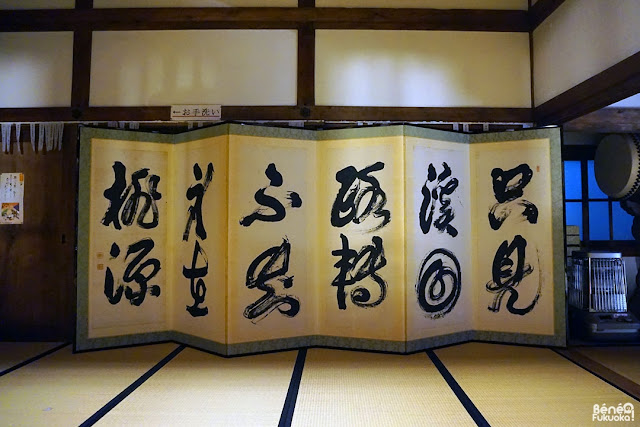 ←お手洗い
只見
溪回
路轉
不知
身在
桃源
Béné
Fukuoka!